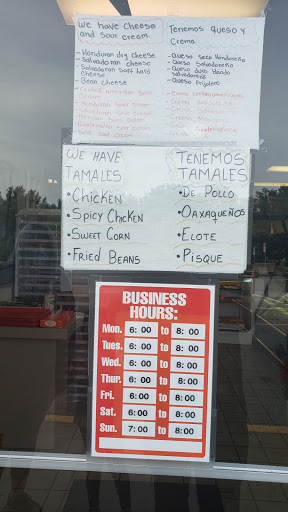 We have Cheese
and Sour cream.
- Honduran dry cheese
- Salvadoran cheese
- Salvadoran soft hard
cheese
- Bean cheese
Tenemos Queso y
Crema
- Queso Seco Hondureño
- Queso Salvadoreño
- Queso Duro blando
Salvadoreño
- Queso frijolero
- Crema Centroamericana
- Crema
- Crema
- Crema
- Crema Guatemalteca
WE HAVE
TAMALES
• Chicken
• Spicy Chicken
• Sweet Corn
• Fried Beans
TENEMOS
TAMALES
• De Pollo
• Oaxaqueños
• Elote
• Pisque
BUSINESS
HOURS:
Mon. 6:00 to 8:00
Tues. 6:00 to 8:00
Wed. 6:00 to 8:00
Thur. 6:00 to 8:00
Fri. 6:00 to 8:00
Sat. 6:00 to 8:00
Sun. 7:00 to 8:00